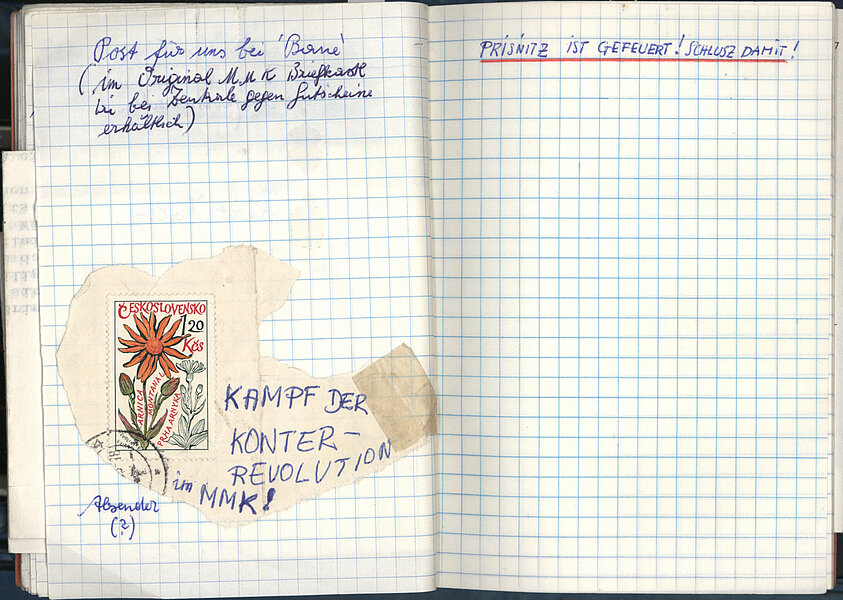 Post für uns bei 'Bané'
(im Original MMK Briefkastl
bei Zentrale gegen Gutscheine
erhältlich)
ČESKOSLOVENSKO
1,20
Kčs
ARNICA
MONTANA L.
PRHA ARNYKA
KAMPF DER
KONTER-
REVOLUTION
im MMK!
Absender
(?)
PRISNITZ IST GEFEUERT! SCHLUSZ DAMIT!